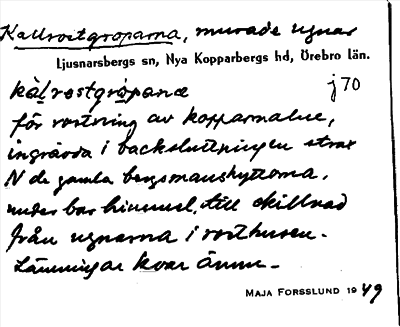 Kallrostgroparna, murade ugnar
Ljusnarsbergs sn, Nya Kopparbergs hd, Örebro län.
kàl̲rostgròpana j 70
för rostning av kopparmalm,
ingrävda i backsluttningen strax
N de gamla bergsmanshyttorna,
under bar himmel, till skillnad
från ugnarna i rosthusen.
Lämningar kvar ännu.
MAJA FORSSLUND 1949